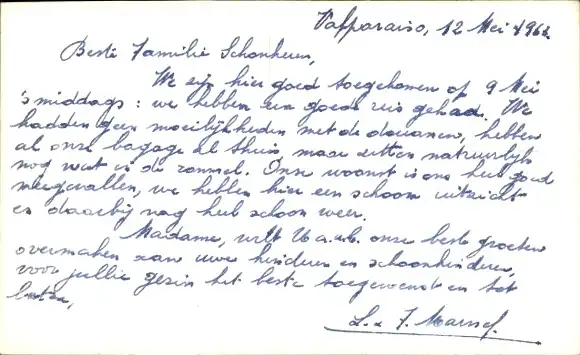 Valparaiso, 12 Mei 196
Beste Familie Schonheere,
We zijn hier goed toegekomen op 9 Mei
's middags: we hebben een goede reis gehad. We
hadden geen moeilijkheden met de douanen, hebben
al onze bagage al thuis maar zitten natuurlijk
nog wat in de rommel. Onze woonst is ons heel goed
meegevallen, we hebben hier een schoon uitzicht
en daarbij nog heel schoon weer.
Madame, wilt U a.u.b. onze beste groeten
overmaken aan uwe kinderen en schoonkinderen,
voor jullie gezin het beste toegewenst en tot
L. & J.